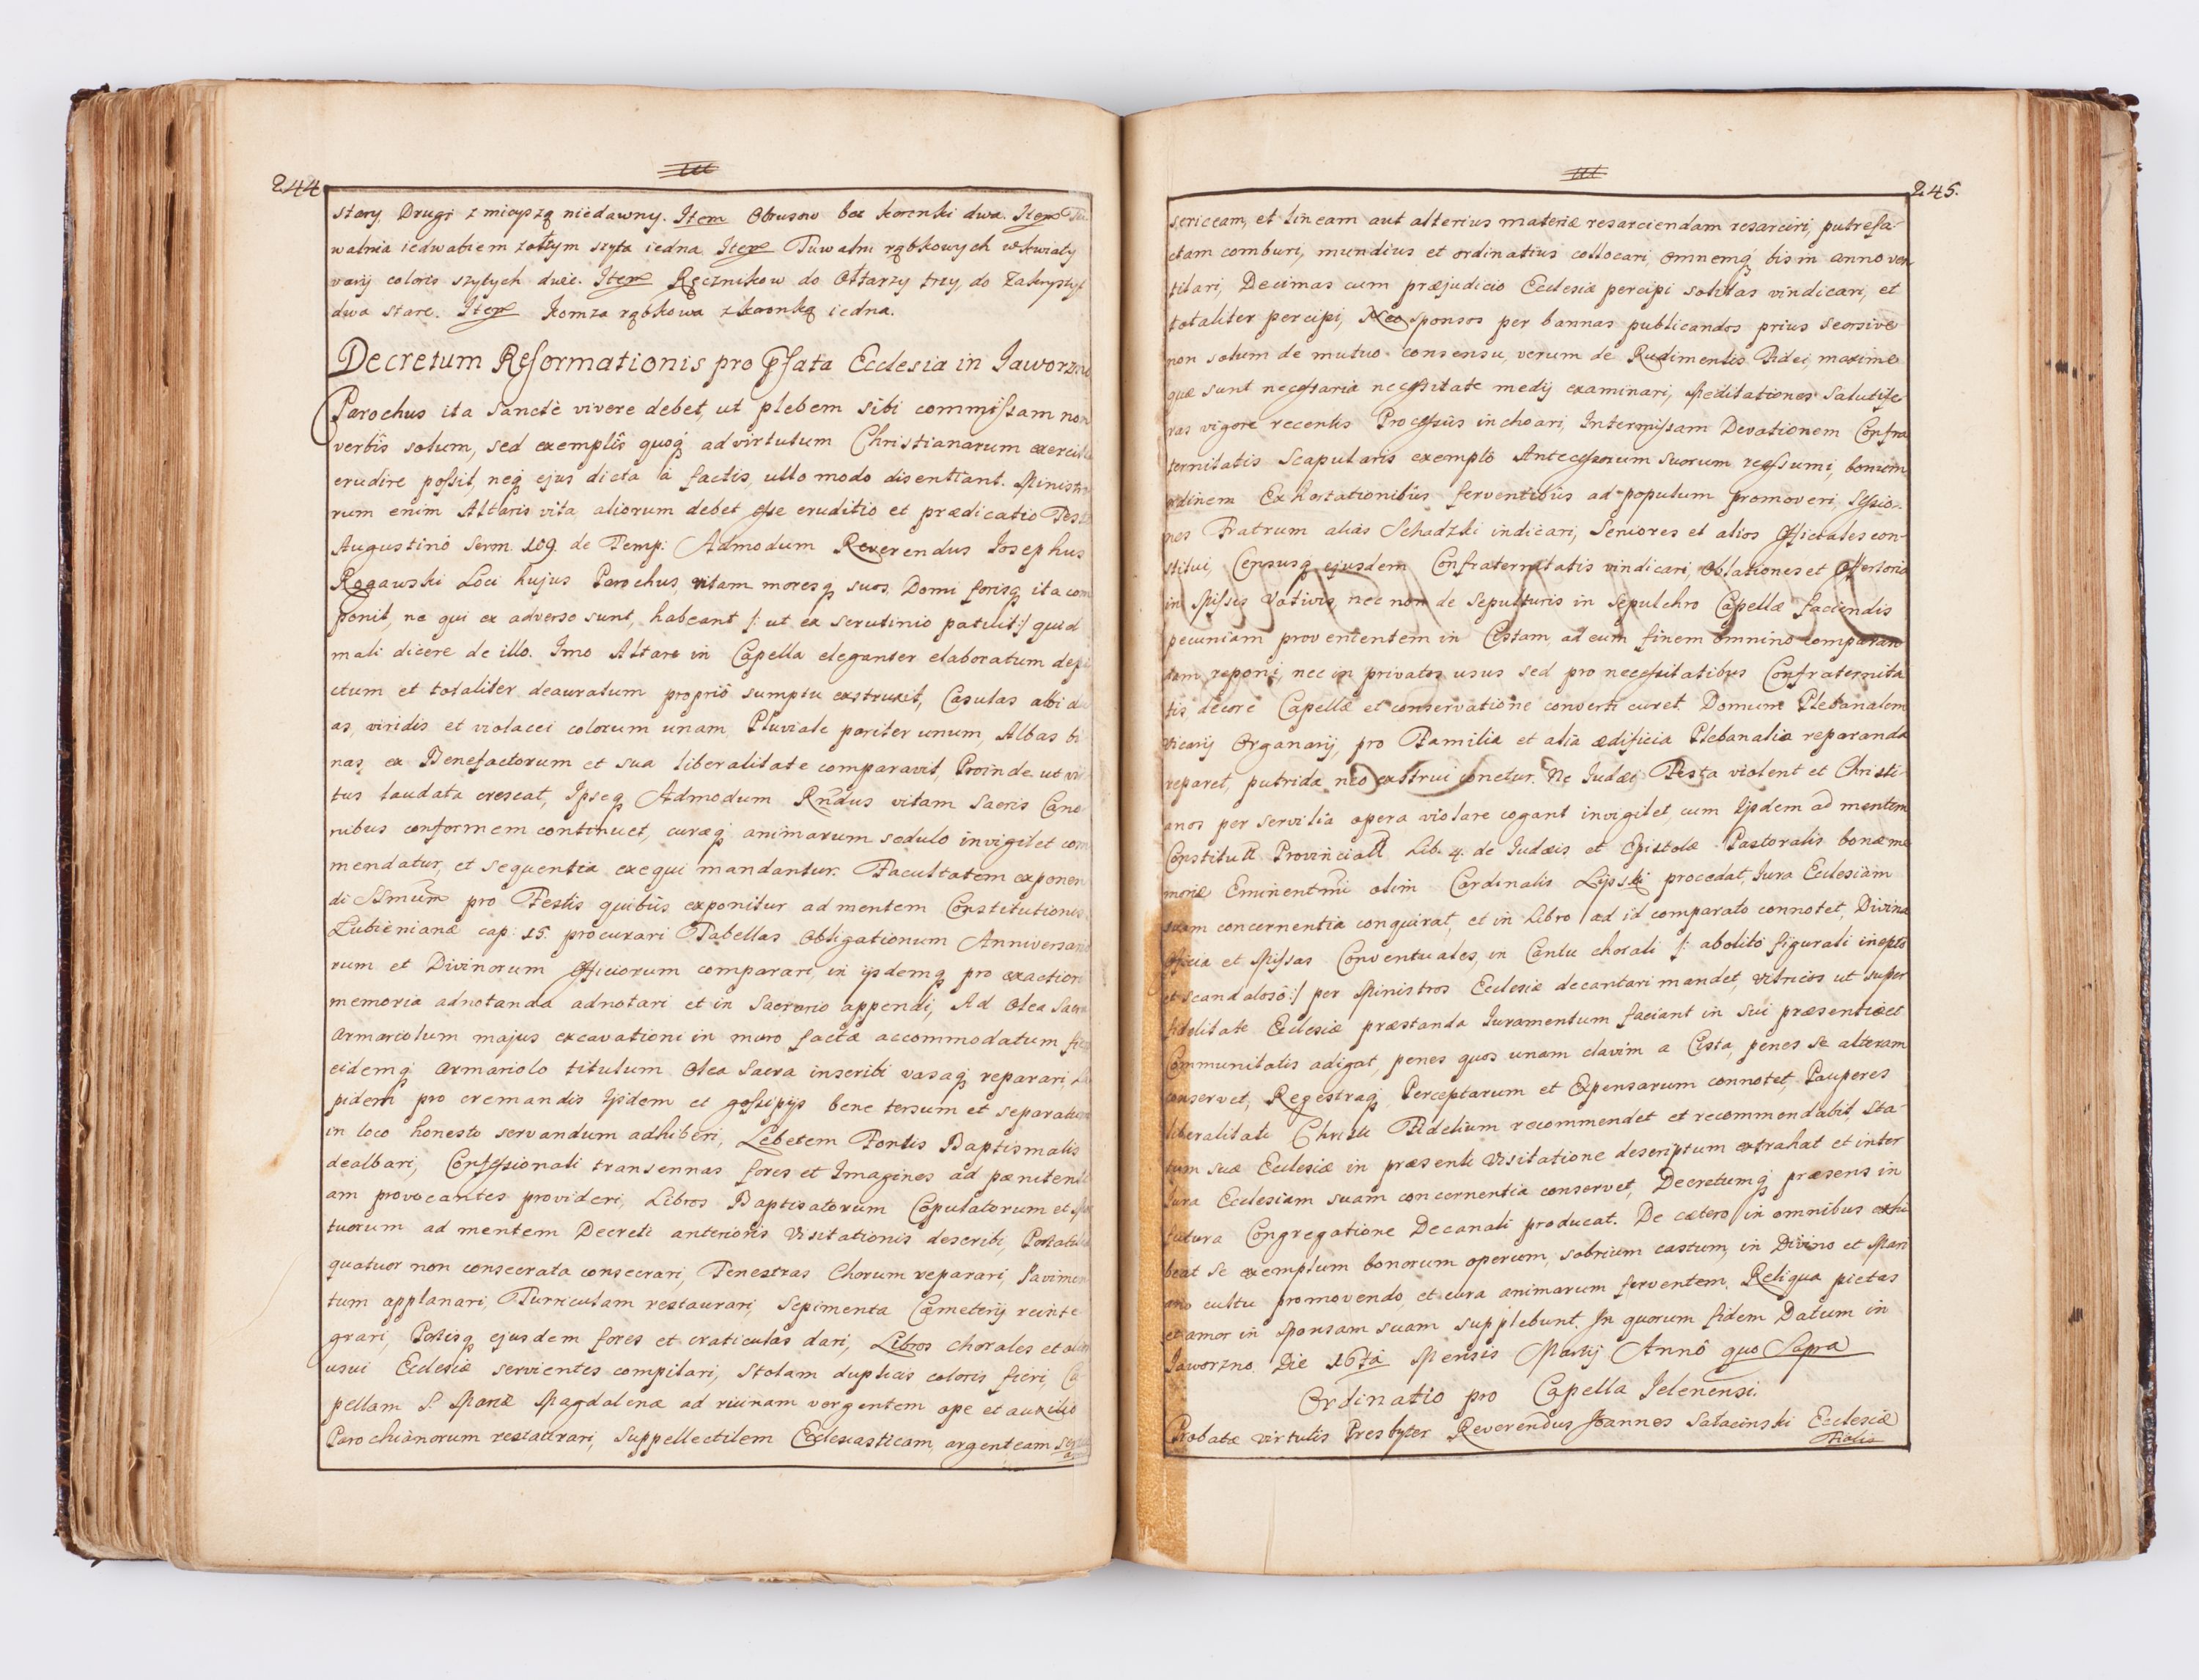 244
stary, Drugi z miąższą niedawny. Item Obrusow bez koronki dwa. Item Tu
walnia iedwabiem żołtym szyta iedna Item Tuwalni rąbkowych w kwiaty
varij coloris szytych dwie. Item Ręcznikow do Ołtarzy trzy, do Zakrystyi
dwa stare. Item Komża rąbkowa z koronką iedna.
Decretum Reformationis pro Pfata Ecclesia in Jaworzno
Parochus ita Sanctè vivere debet, ut plebem sibi commissam non
verbis solum, sed exemplis quoq́ ad virtutum Christianarum exercitia
erudire possit, neq́ ejus dicta à factis ullo modo disentiant. Ministro
rum enim Altaris vita aliorum debet esse eruditio et prædicatio Teste
Augustinô Serm. 109. de Temp: Admodum Reverendus Josephus
Rogawski Loci hujus Parochus, vitam moresq́ suos, Domi forisq́ ita com
ponit, ne qui ex adverso sunt, habeant /: ut ex Scrutinio patuit:/ quid
mali dicere de illo. Imo Altare in Capella eleganter elaboratum depi
ctum et totaliter deauratum propriô sumptu exstruxit, Casulas albi du
as, viridis et violacei colorum unam, Pluviale pariter unum, Albas bi
nas, ex Benefactorum et sua liberalitate comparavit, Proinde ut vir
tus laudata crescat, Ipseq́ Admodum Rndus vitam Sacris Cano
nibus conformem continuet, curæq́ animarum sedulo invigilet com
mendatur, et sequentia exequi mandantur. Facultatem exponen
di SSmum pro Festis quibus exponitur ad mentem Constitutionis
Lubienianæ cap: 15. procurari Tabellas Obligationum Anniversario
rum et Divinorum Officiorum comparari, in ijsdemq́ pro exactiori
memoria adnotanda adnotari et in Sacrario appendi, Ad Olea Sacra
armariolum majus excavationi in muro factæ accommodatum fieri
eidemq́ armariolo titulum Olea Sacra inscribi vasaq́ reparari, La
pidem pro cremandis ijsdem et gossipijs bene tersum et separatum
in loco honesto servandum adhiberi, Lebetem Fontis Baptismalis
dealbari, Confessionali transennas fores et Imagines ad pænitenti
am provocantes provideri, Libros Baptisatorum Copulatorum et Mor
tuorum ad mentem Decreti anterioris Visitationis describi, Portatilia
quatuor non consecrata consecrari, Fenestras Chorum reparari, Pavimen
tum applanari, Turriculam restaurari, Sepimenta Cæmeterij reinte
grari, Portisq́ ejusdem fores et craticulas dari, Libros Chorales et alios
usui Ecclesiæ servientes compilari, Stolam duplicis coloris fieri, Ca
pellam S. Mariæ Magdalenæ ad ruinam vergentem ope et auxilio
Parochianorum restaurari, Suppellectilem Ecclesiasticam, argenteam
245.
sericeam, et lineam aut alterius materiæ resarciendam resarciri, putrefa-
ctam comburi, mundius et ordinatius collocari, omnemq́ bis in anno ven
tilari, Decimas cum præjudicio Ecclesiæ percipi solitas vindicari, et
totaliter percipi, Neo sponsos per bannas publicandos prius seorsive
non solum de mutuo consensu, verum de Rudimentis Fidei, maxime
quæ sunt necessaria necessitate medij examinari, Meditationes Salutife
ras vigore recentis Processûs inchoari, Intermissam Devotionem Confra
ternitatis Scapularis exemplô Antecessorum suorum reassumi, bonum
ordinem Exhortationibus ferventibus ad populum promoveri, Sessio-
nes Fratrum aliàs Schadzki indicari, Seniores et alios Officiales con-
stitui, Censusq́ ejusdem Confraternitatis vindicari, Oblationes et Offertoria
in Missis Votivis, nec non de Sepulturis in Sepulchro Capellæ faciendis
pecuniam provenientem in Cistam, ad eum finem omnino comparan
dam reponi, nec in privatos usus sed pro necessitatibus Confraternita
tis decore Capellæ et conservatione converti curet. Domum Plebanalem
Vicarij Organarij, pro Familia et alia ædificia Plebanalia reparanda
reparet, putrida neo exstrui conetur. Ne Judæi Festa violent et Christi-
anos per servilia opera violare cogant invigilet, cum ijsdem ad mentem
Constitutt Provinciall Lib. 4. de Judæis et Epistolæ Pastoralis bonæ me
moriæ Eminentmi olim Cardinalis Lipski procedat, Jura Ecclesiam
suam concernentia conquirat, et in Libro ad id comparato connotet, Divina
Officia et Missas Conventuales, in Cantu chorali /: abolitô figurali ineptô
et scandalosô:/ per Ministros Ecclesiæ decantari mandet, Vitricos ut super
fidelitate Ecclesiæ præstanda Juramentum faciant in sui præsentia et
Communitatis adigat, penes quos unam clavim a Cista, penes se alteram
conservet, Regestraq́ Perceptarum et Expensarum connotet, Pauperes
liberalitati Christi Fidelium recommendet et recommendabit, Sta-
tum suæ Ecclesiæ in præsenti Visitatione descriptum extrahat et inter
Jura Ecclesiam suam concernentia conservet, Decretumq́ præsens in
futura Congregatione Decanali producat. De cætero in omnibus exhi
beat se exemplum bonorum operum, sobrium castum, in Divino et Mari
ano cultu promovendo, et cura animarum ferventem. Reliqua pietas
et amor in Sponsam suam supplebunt. In quorum fidem Datum in
Jaworzno. Die 16tâ Mensis Martij Annô quo Supra
Ordinatio pro Capella Jelenensi.
Probatæ virtutis Presbyter Reverendus Joannes Salacinski Ecclesiæ